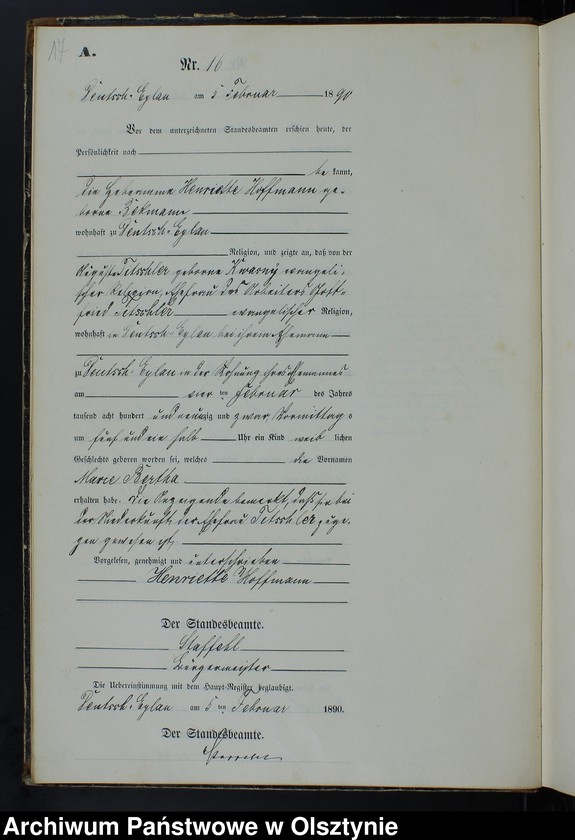 17
A.
Nr. 16
Deutsch-Eylau am 5 Februar 1890
Vor dem unterzeichneten Standesbeamten erschien heute, der
Persönlichkeit nach
be kannt,
die Hebamme Henriette Hoffmann ge-
borne
wohnhaft zu Deutsch-Eylau
Religion, und zeigte an, daß von der
Auguste Titschler geborne evangeli-
scher Religion, Ehefrau des Arbeiters Gott-
fried Titschler evangelischer Religion,
wohnhaft in Deutsch-Eylau bei ihrem Ehemann
zu Deutsch-Eylau in der Wohnung ihres Ehemannes
am vier ten Februar des Jahres
tausend acht hundert und neunzig und zwar Vormittag s
um fünf und ein halb Uhr ein Kind weib lichen
Geschlechts geboren worden sei, welches die Vornamen
Marie Bertha
erhalten habe. Die Anzeigende bemerkt, dass sie bei
der Niederkunft der Ehefrau Titschler zuge-
gen gewesen ist.
Vorgelesen, genehmigt und unterschrieben
Henriette Hoffmann
Der Standesbeamte.
Staffehl
Bürgermeister
Die Uebereinstimmung mit dem Haupt-Register beglaubigt.
Deutsch-Eylau am 5 ten Februar 1890.
Der Standesbeamte.
Archiwum Państwowe w Olsztynie